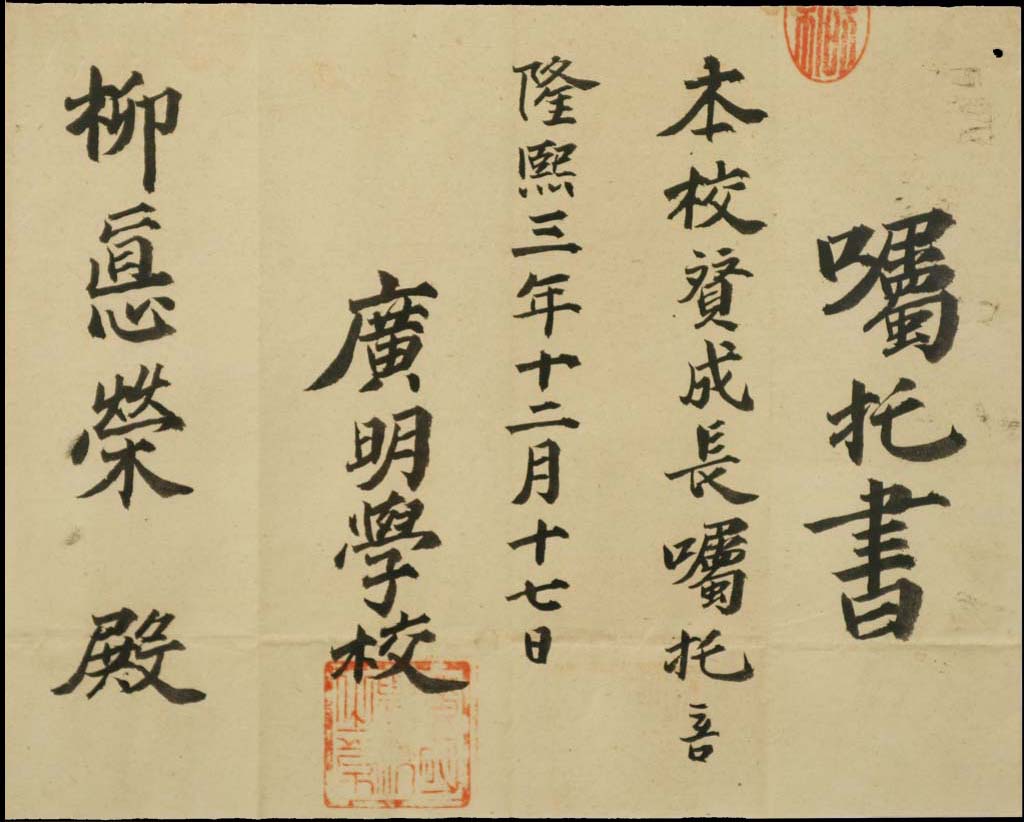 囑托書
本校贊成長囑托
隆熙三年十二月十七日
廣明學校
柳悳榮 殿